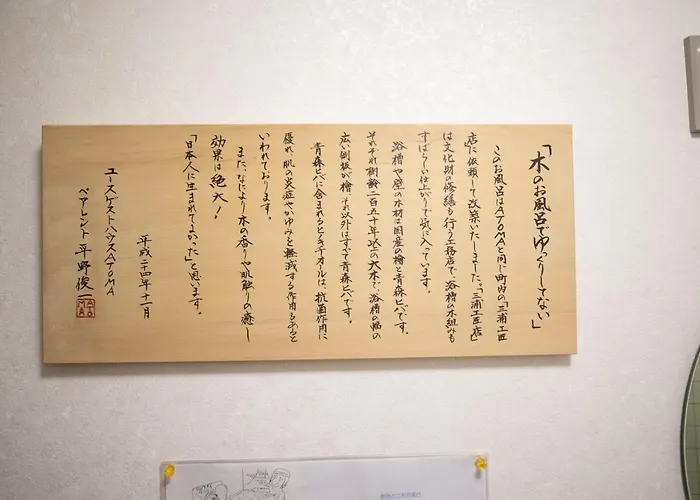 「木のお風呂でゆっくりしてない」
このお風呂はATOMAと同じ町内の「三浦工匠
店」に依頼して改築いたしました。「三浦工匠店」
は文化財の修繕も行う工務店で、浴槽の木組みも
すばらしい仕上がりで気に入っています。
浴槽や壁の木材は国産の檜と青森ヒバです。
それぞれ樹齢二百五十年以上の大木で、浴槽の幅の
広い側板が檜、それ以外はすべて青森ヒバです。
青森ヒバに含まれるヒノキチオールは、抗菌作用に
優れ、肌の炎症やかゆみを軽減する作用もあると
いわれております。
また、なにより木の香りや肌触りの癒し
効果は絶大!
「日本人に生まれてよかった」と思います。
平成二十四年十一月
ユースゲストハウスATOMA
ペアレント 平野俊一
ATOMA